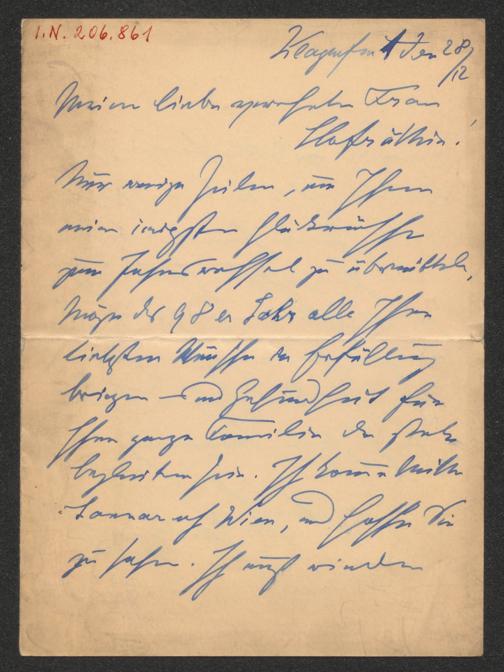 I.N. 206.861
Klagenfurt den 28/12
Meine liebe verehrte Frau
Hofräthin!
Nur wenige Zeilen, um Ihnen
meine innigsten Glückwünsche
zum Jahreswechsel zu übermitteln,
Möge das 98er Jahr alle Ihre
liebsten Wünsche in Erfüllung
bringen – und Gesundheit für
Ihre ganze Familie der stete
Begleiter sein. Ich komme Mitte
Januar nach Wien, und hoffe Sie
zu sehen. Ich muß wieder